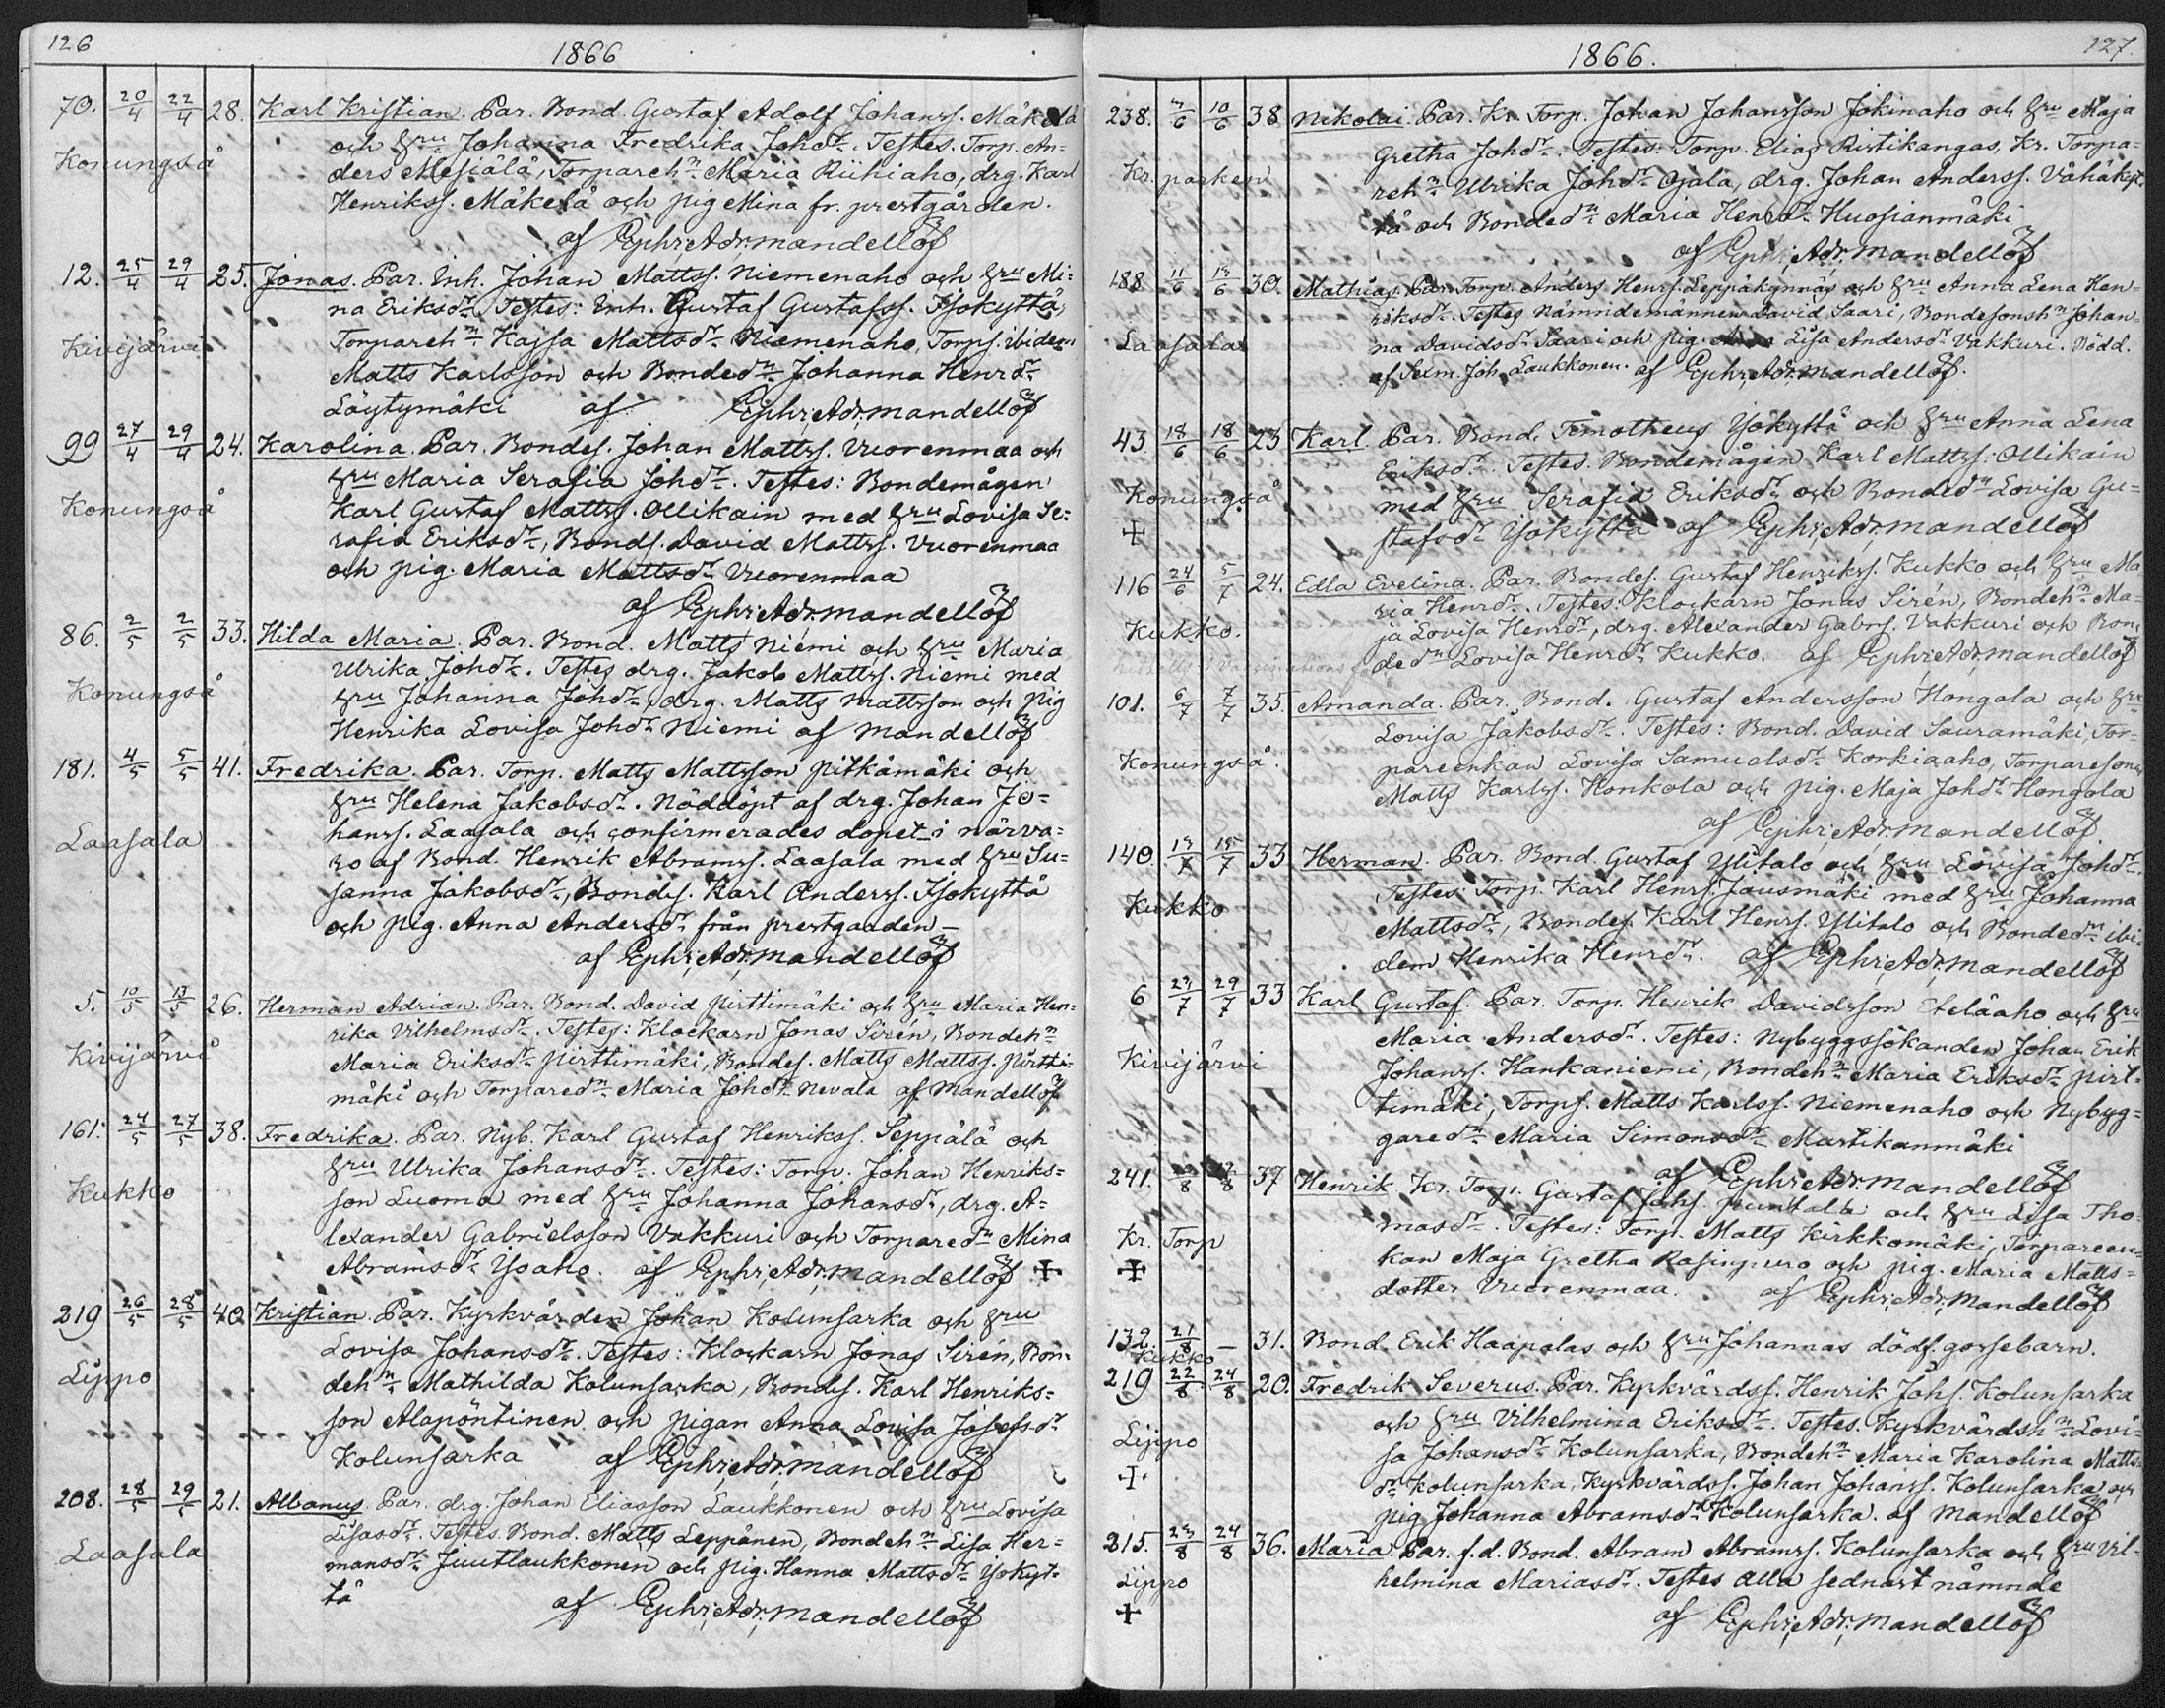 126
1866
70. 20/4 22/4 28. Karl Kristian. Par. Bond. Gustaf Adolf Johanss. Mäkelä
och hru Johanna Fredrika Johdr. Testes. Torp. An-
Konungså
ders Mesiälä, Torpareh:n Maria Riihiaho, drg. Karl
Henrikss. Mäkelä och pig Mina fr. prestgården.
af Ephr. Adr. Mandellöf
12. 25/4 29/4 25. Jonas. Par. Inh. Johan Mattss. Niemenaho och hru Mi-
na Eriksdr. Testes: Inh. Gustaf Gustafss. Isokyttä,
Torpareh:n Kajsa Mattsdr. Niemenaho, Torps. ibidem
Kivijärvi
Matts Karlsson och Bonded:n Johanna Henrdr.
Löytymäki af Ephr. Adr. Mandellöf
99 27/4 29/4 24. Karolina. Par. Bondes. Johan Mattss. Vuorenmaa och
hru Maria Serafia Johdr. Testes: Bondemågen
Konungså
Karl Gustaf Mattss. Ollikain med hru Lovisa Se-
rafia Eriksdr, Bonds. David Mattss. Vuorenmaa
och pig. Maria Mattsdr Vuorenmaa
af Ephr. Adr. Mandellöf
86. 2/5 2/5 33. Hilda Maria. Par. Bond. Matts Niemi och hru Maria
Ulrika Johdr. Testes drg. Jakob Mattss. Niemi med
Konungså
hru Johanna Johdr, drg. Matts Mattsson och pig
Henrika Lovisa Johdr Niemi af Mandellöf
181. 4/5 5/5 41. Fredrika. Par. Torp. Matts Mattsson Pitkämäki och
hru Helena Jakobsdr. Nöddöpt af drg. Johan Jo-
Laasala
hanss. Laasala och confirmerades dopet i närva-
ro af Bond. Henrik Abramss. Laasala med hru Su-
sanna Jakobsdr, Bonds. Karl Anderss. Isokyttä
och pig. Anna Andersdr från prestgaarden –
af Ephr. Adr. Mandellöf
5. 10/5 13/5 26. Herman Adrian. Par. Bond. David Pirttimäki och hru Maria Hen-
rika Vilhelmsdr. Testes: Klockarn Jonas Sirén, Bondeh:n
Kivijärvi
Maria Eriksdr Pirttimäki, Bondes. Matts Mattss. Pirtti-
mäki och Torpared:n Maria Johdr Nevala af Mandellöf
161. 24/5 27/5 38. Fredrika. Par. Nyb. Karl Gustaf Henrikss. Seppälä och
hru Ulrika Johansdr. Testes: Torp. Johan Henriks-
Kukko
son Luoma med hru Johanna Johansdr, drg. A-
lexander Gabrielsson Vakkuri och Torpared:n Mina
Abramsdr Isoaho. af Ephr. Adr. Mandellöf +
219 26/5 28/5 40 Kristian. Par. Kyrkvärden Johan Kolunsarka och hru
Lovisa Johansdr. Testes: Klockarn Jonas Sirén, Bon-
Lippo
deh:n Mathilda Kolunsarka, Bonds. Karl Henriks-
son Alapöntinen och pigan Anna Lovisa Josefsdr
Kolunsarka af Ephr. Adr. Mandellöf
208. 28/5 29/5 21. Albanus. Par. drg. Johan Eliasson Laukkonen och hru Lovisa
Lisasdr. Testes. Bond. Matts Leppänen, Bondeh:n Lisa Her-
Laasala
mansdr Juutlaukkonen och pig. Hanna Mattsdr Isokyt-
tä af Ephr. Adr. Mandellöf
127.
1866.
238. 10/6 38 Nikolai. Par. Kr. Torp. Johan Johansson Jokinaho och hru Maja
Gretha Johdr. Testes: Torp. Elias Ristikangas, Kr. Torpa-
Kr. parken
reh:n Ulrika Johdr Ojala, drg. Johan Anderss. Vähäkyt-
tä och Bonded:n Maria Henrdr Huosianmäki
af Ephr. Adr. Mandellöf
188 11/6 30. Mathias. Par. Torp. Anders Henrs. Leppäkynnäs och hru Anna Lena Hen-
riksdr. Testes Nämndemannen David Saari, Bondesonsh:n Johan-
Laasala
na Davidsdr Saari och pig. Lisa Andersdr Vakkuri. Nödd.
af Sexm. Joh. Laukkonen. af Ephr. Adr. Mandellöf.
43 18/6 18/6 23 Karl. Par. Bond. Timotheus Isokyttä och hru Anna Lena
Eriksdr. Testes. Bondemågen Karl Mattss. Ollikain
Konungså
med hru Serafia Eriksdr och Bonded:n Lovisa Gu-
stafsdr Isokyttä af Ephr. Adr. Mandellöf
+
116 24/6 5/7 24. Edla Evelina. Par. Bondes. Gustaf Henrikss. Kukko och hru Ma
ria Henrdr. Testes: Klockarn Jonas Sirén, Bondeh:n Ma-
Kukko.
ja Lovisa Henrdr, drg. Alexander Gabrs. Vakkuri och Bon-
ded:n Lovisa Henrdr Kukko. af Ephr. Adr. Mandellöf
101. 6/7 7/7 35. Amanda. Par. Bond. Gustaf Andersson Hongola och hru
Lovisa Jakobsdr. Testes: Bond. David Sauramäki, Tor-
Konungså.
pareenkan Lovisa Samuelsdr Korkiaaho, Torparesonen
Matts Karlss. Honkola och pig. Maja Johdr Hongola
af Ephr. Adr. Mandellöf
140. 13/7 15/7 33 Herman. Par. Bond. Gustaf Ylitalo och hru Lovisa Johdr.
Testes: Torp. Karl Henrs. Jausmäki med hru Johanna
Kukko
Mattsdr, Bondes. Karl Henrs. Ylitalo och Bonded:n ibi-
dem Henrika Henrdr. af Ephr. Adr. Mandellöf
6 29/7 33 Karl Gustaf. Par. Torp. Henrik Davidsson Eteläaho och hru
Maria Andersdr. Testes: Nybyggssökanden Johan Erik
Kivijärvi
Johanss. Hankaniemi, Bondeh:n Maria Eriksdr Pirt-
timäki, Torps. Matts Karlss. Niemenaho och Nybyg-
gared:n Maria Simonsdr Martikanmäki
af Ephr. Adr. Mandellöf
241. 37 Henrik Kr. Torp. Gustaf Johs. och hru Lisa Tho-
masdr. Testes: Torp. Matts Kirkkomäki, Torpareen-
Kr. Torp
kan Maja Gretha Rasinpuro och pig. Maria Matts-
+
dotter Vuorenmaa. af Ephr. Adr. Mandellöf
132 21/8 – 31. Bond. Erik Haapalas och hru Johannas dödf. gossebarn.
Kukko
219 22/8 24/8 20. Fredrik Severus. Par. Kyrkvärdss. Henrik Johs. Kolunsarka
och hru Vilhelmina Eriksdr. Testes. Kyrkvärdsh:n Lovi-
Lippo
sa Johansdr Kolunsarka, Bondeh:n Maria Karolina Matts-
+
dr Kolunsarka, Kyrkvärdss. Johan Johanss. Kolunsarka och
pig Johanna Abramsdr Kolunsarka. af Mandellöf
215. 23/8 24/8 36. Maria. Par. f.d. Bond. Abram Abramss. Kolunsarka och hru Vil-
Lippo
helmina Mariasdr. Testes alla sednast nämnde
+
af Ephr. Adr. Mandellöf